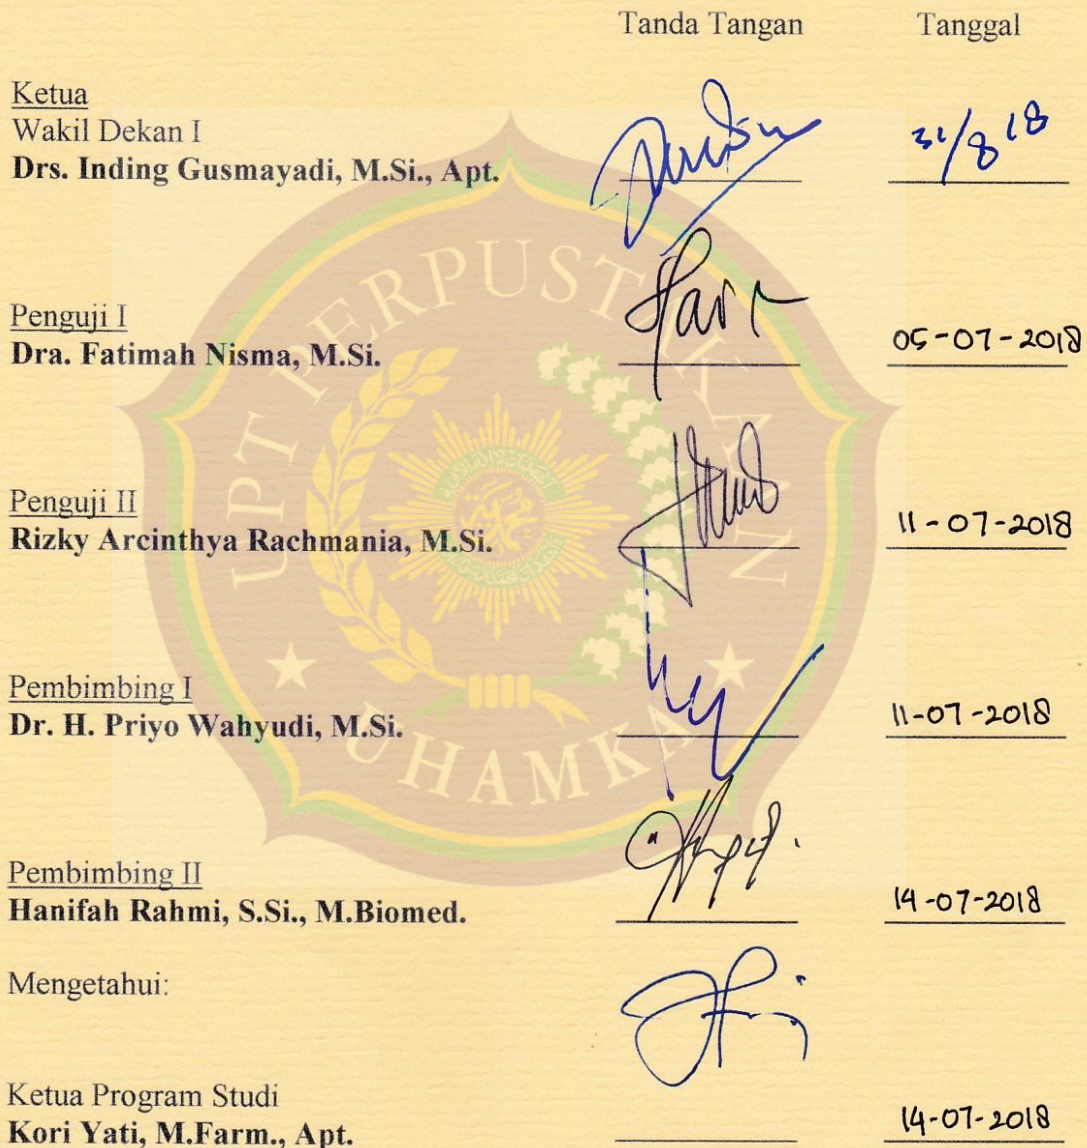 Tanda Tangan Tanggal
Ketua
Wakil Dekan I
Drs. Inding Gusmayadi, M.Si., Apt. 31/8 18
Penguji I
Dra. Fatimah Nisma, M.Si. 05-07-2018
Penguji II
Rizky Arcinthya Rachmania, M.Si. 11-07-2018
Pembimbing I
Dr. H. Priyo Wahyudi, M.Si. 11-07-2018
Pembimbing II
Hanifah Rahmi, S.Si., M.Biomed. 14-07-2018
Mengetahui:
Ketua Program Studi
Kori Yati, M.Farm., Apt. 14-07-2018
UPT PERPUSTAKAAN
UHAMKA